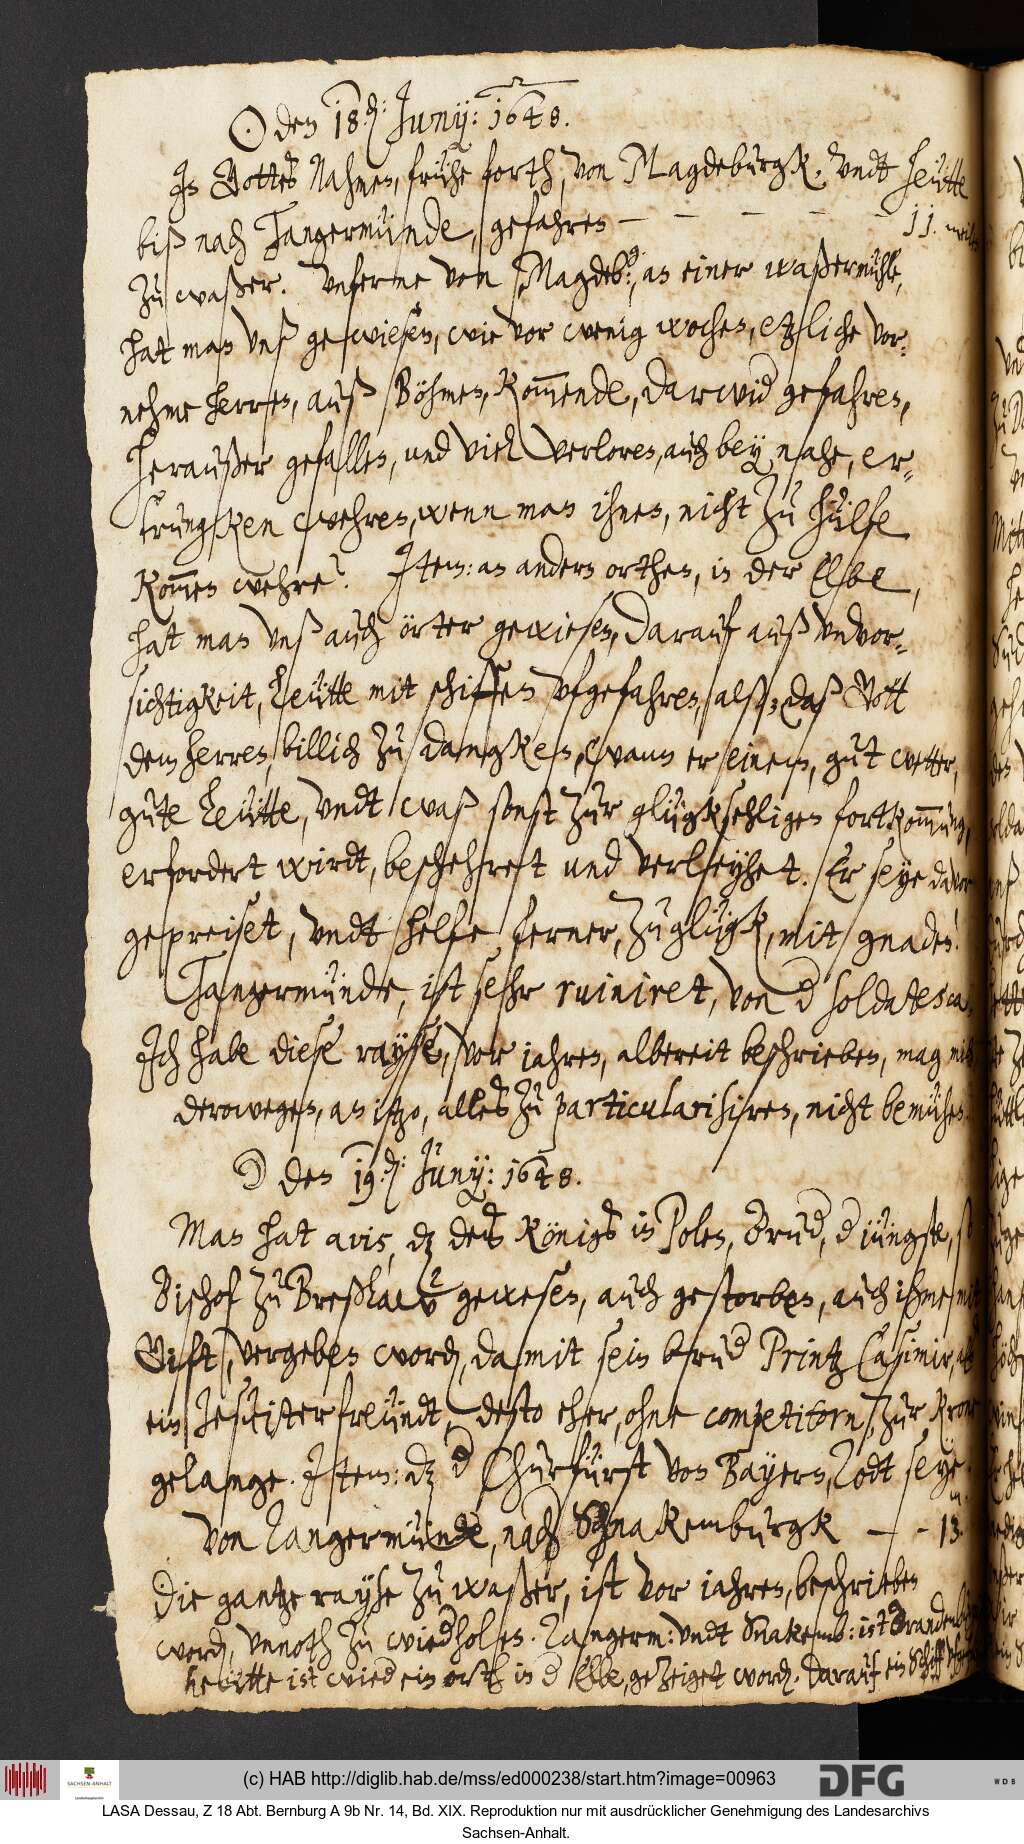 ⊙ den 18. Junÿ: 1648.
In Gottes Nahmen, frühe forth, von Magdeburgk. Vndt heütte
biß nach Tangermünde, gefahren — — — — — 11. meilen
Zu waßer. Vnferne von Magdeb: an einer waßermühle,
hat man vnß gewiesen, wie vor wenig wochen, etzliche vor-
nehme herren, auß Böhmen, kommende, darwid gefahren,
heraußer gefallen, und viel verloren, auch bey nahe, er-
trungken wehren, wenn man ihnen, nicht zu hülfe
kommen wehre. Item: an andern orthen, in der Elbe,
hat man vnß auch örter gewiesen, darauf auß vnvor-
sichtigkeit, Leütte mit schiffen vfgefahren, also daß Gott
dem herren, billich zu dangken, wann er einem, gut wetter,
gute Leütte, vndt waß sonst zur glügksehligen fortkommung,
erfordert wirdt, beschehret und verleyhet. Er seye davor
gepreiset, vndt helfe ferner, zu glügk, mit gnaden.
Tangermünde, ist sehr ruiniret, von d soldatesca.
Ich habe diese rayse, vor jahren, albereit beschrieben, mag mich
derowegen, an itzo, alles zu particularisiren, nicht bemühen.
☽ den 19. Junÿ: 1648.
Man hat avis, dz des Königs in Polen, Brud, d jüngste, so
Bischof zu Breßlaw gewesen, auch gestorben, auch ihme mit
Gift, vergeben word, damit sein brud Printz Casimir, als
ein Jesuiterfreündt, desto eher, ohne competitorn, zur Kron
gelange. Item: dz d Churfürst von Bayern, Todt seye.
Von Tangermünde, nach Schnakemburgk — - 13. m
Die gantze rayse zu waßer, ist vor jahren, beschrieben
word, vnnoth zu wiedholen. Tangerm: vndt Snakemb: ist Brandenb
heütte ist wied ein orth in d Elbe, gezeiget word. darauf ein Schiff
(c) HAB http://diglib.hab.de/mss/ed000238/start.htm?image=00963
SACHSEN-ANHALT
DFG
WDB
LASA Dessau, Z 18 Abt. Bernburg A 9b Nr. 14, Bd. XIX. Reproduktion nur mit ausdrücklicher Genehmigung des Landesarchivs
Sachsen-Anhalt.